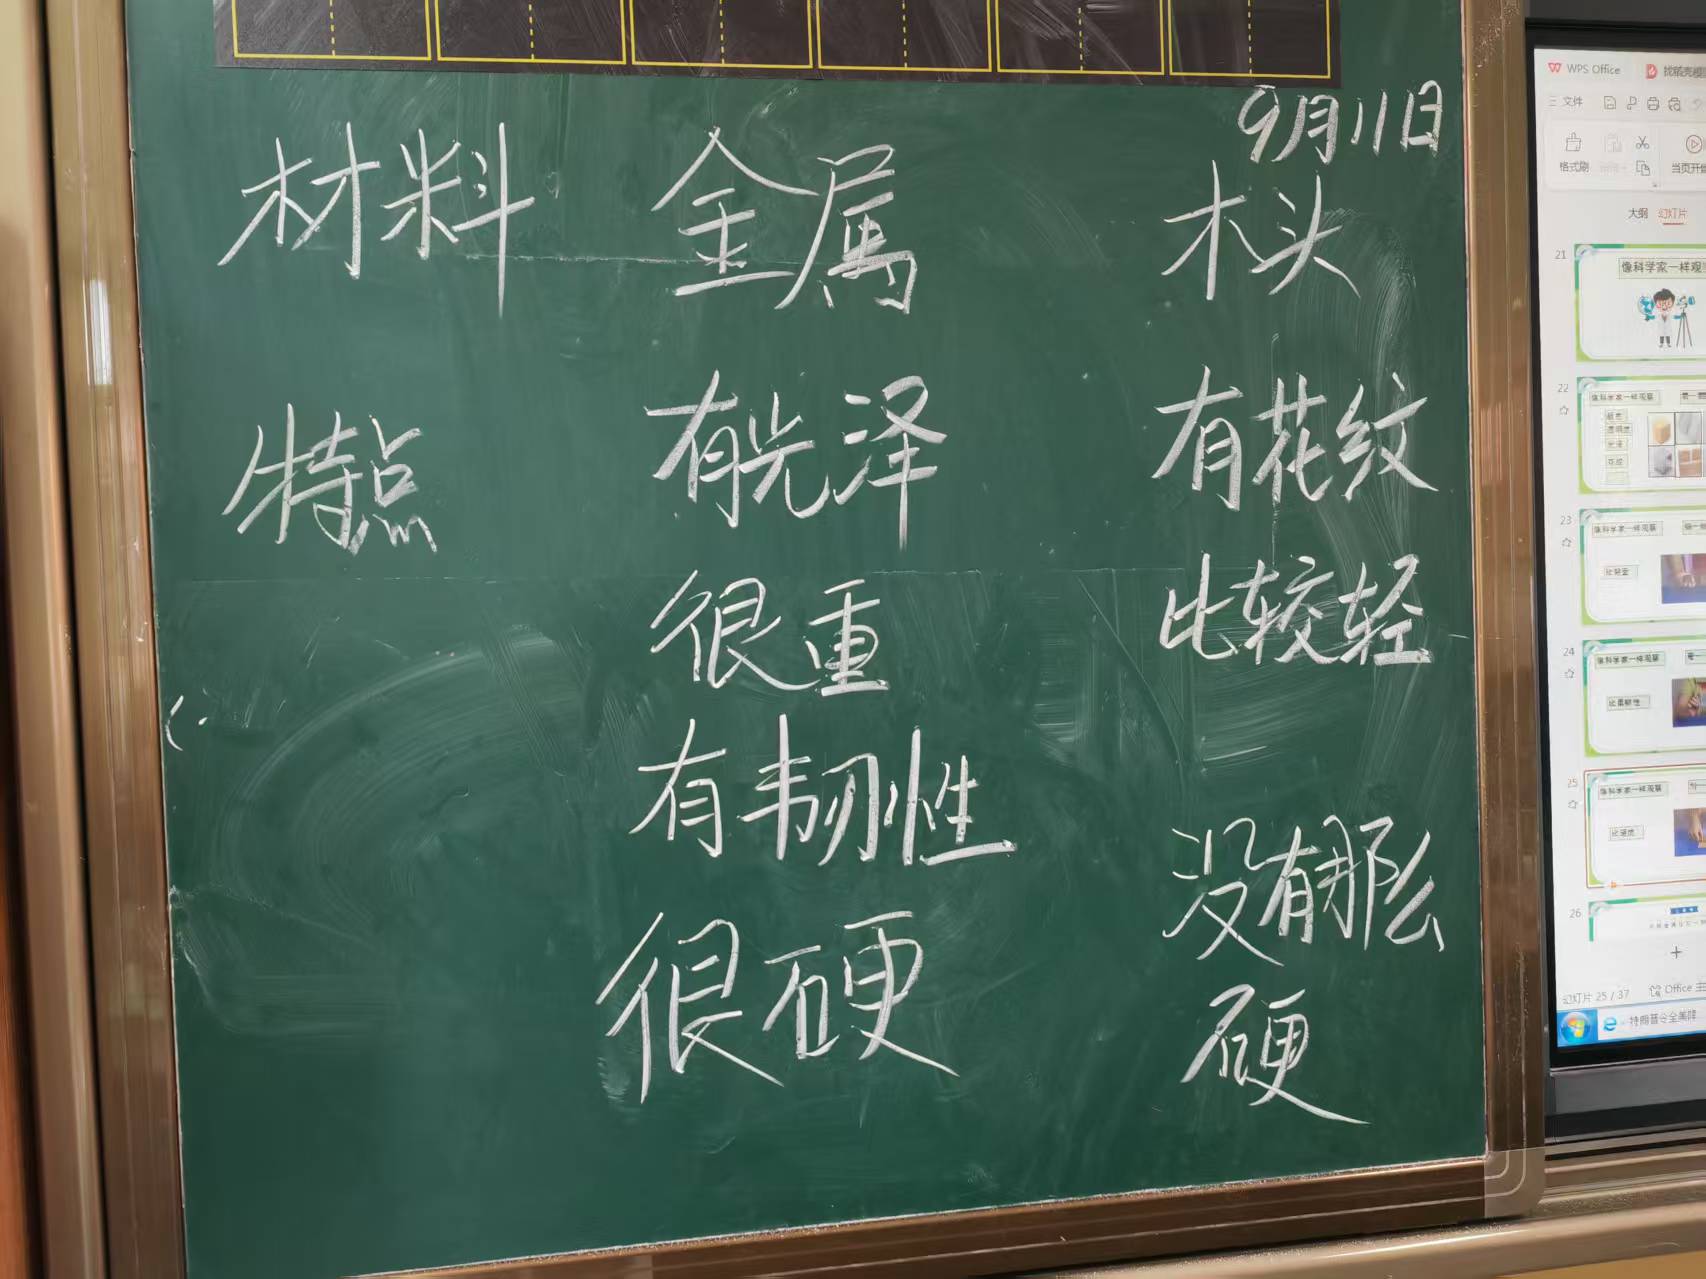 9月11日
材料 金属 木头
特点 有光泽 有花纹
很重 比较轻
有韧性
没有那么
很硬 硬
WPS Office
三 文件
格式刷
当页开始
大纲 幻灯片
21
像科学家一样观察
22
像科学家一样观察
23
像科学家一样观察
24
像科学家一样观察
比柔韧性
25
像科学家一样观察
比硬度
26
幻灯片 25 / 37
Office 主